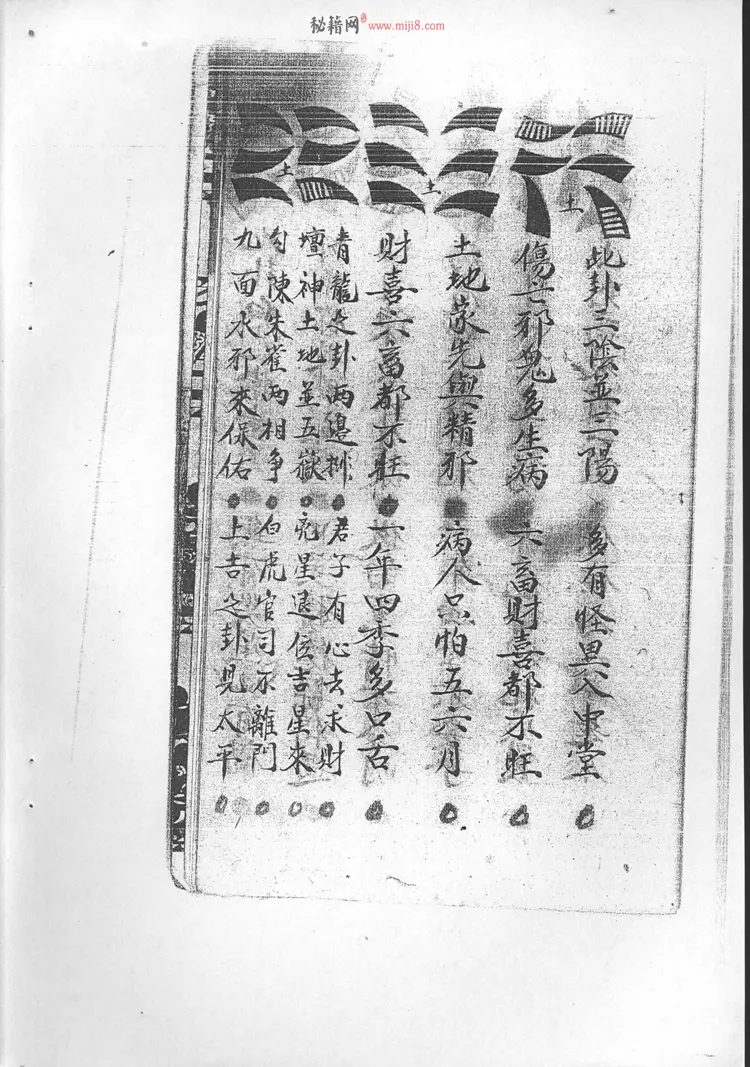 秘籍网 www.miji8.com
土 土 土
此卦三陰並三陽 多有怪異入中堂
傷亡邪鬼多生病 六畜財喜都不旺
土地家先與精邪 病人只怕五六月
財喜六畜都不旺 一年四季多口舌
青龍之卦兩邊排 君子有心去求財
壇神土地並五嶽 兇星退位吉星來
勾陳朱雀兩相争 白虎官司不離門
九面水邪來保佑 上吉之卦見太平